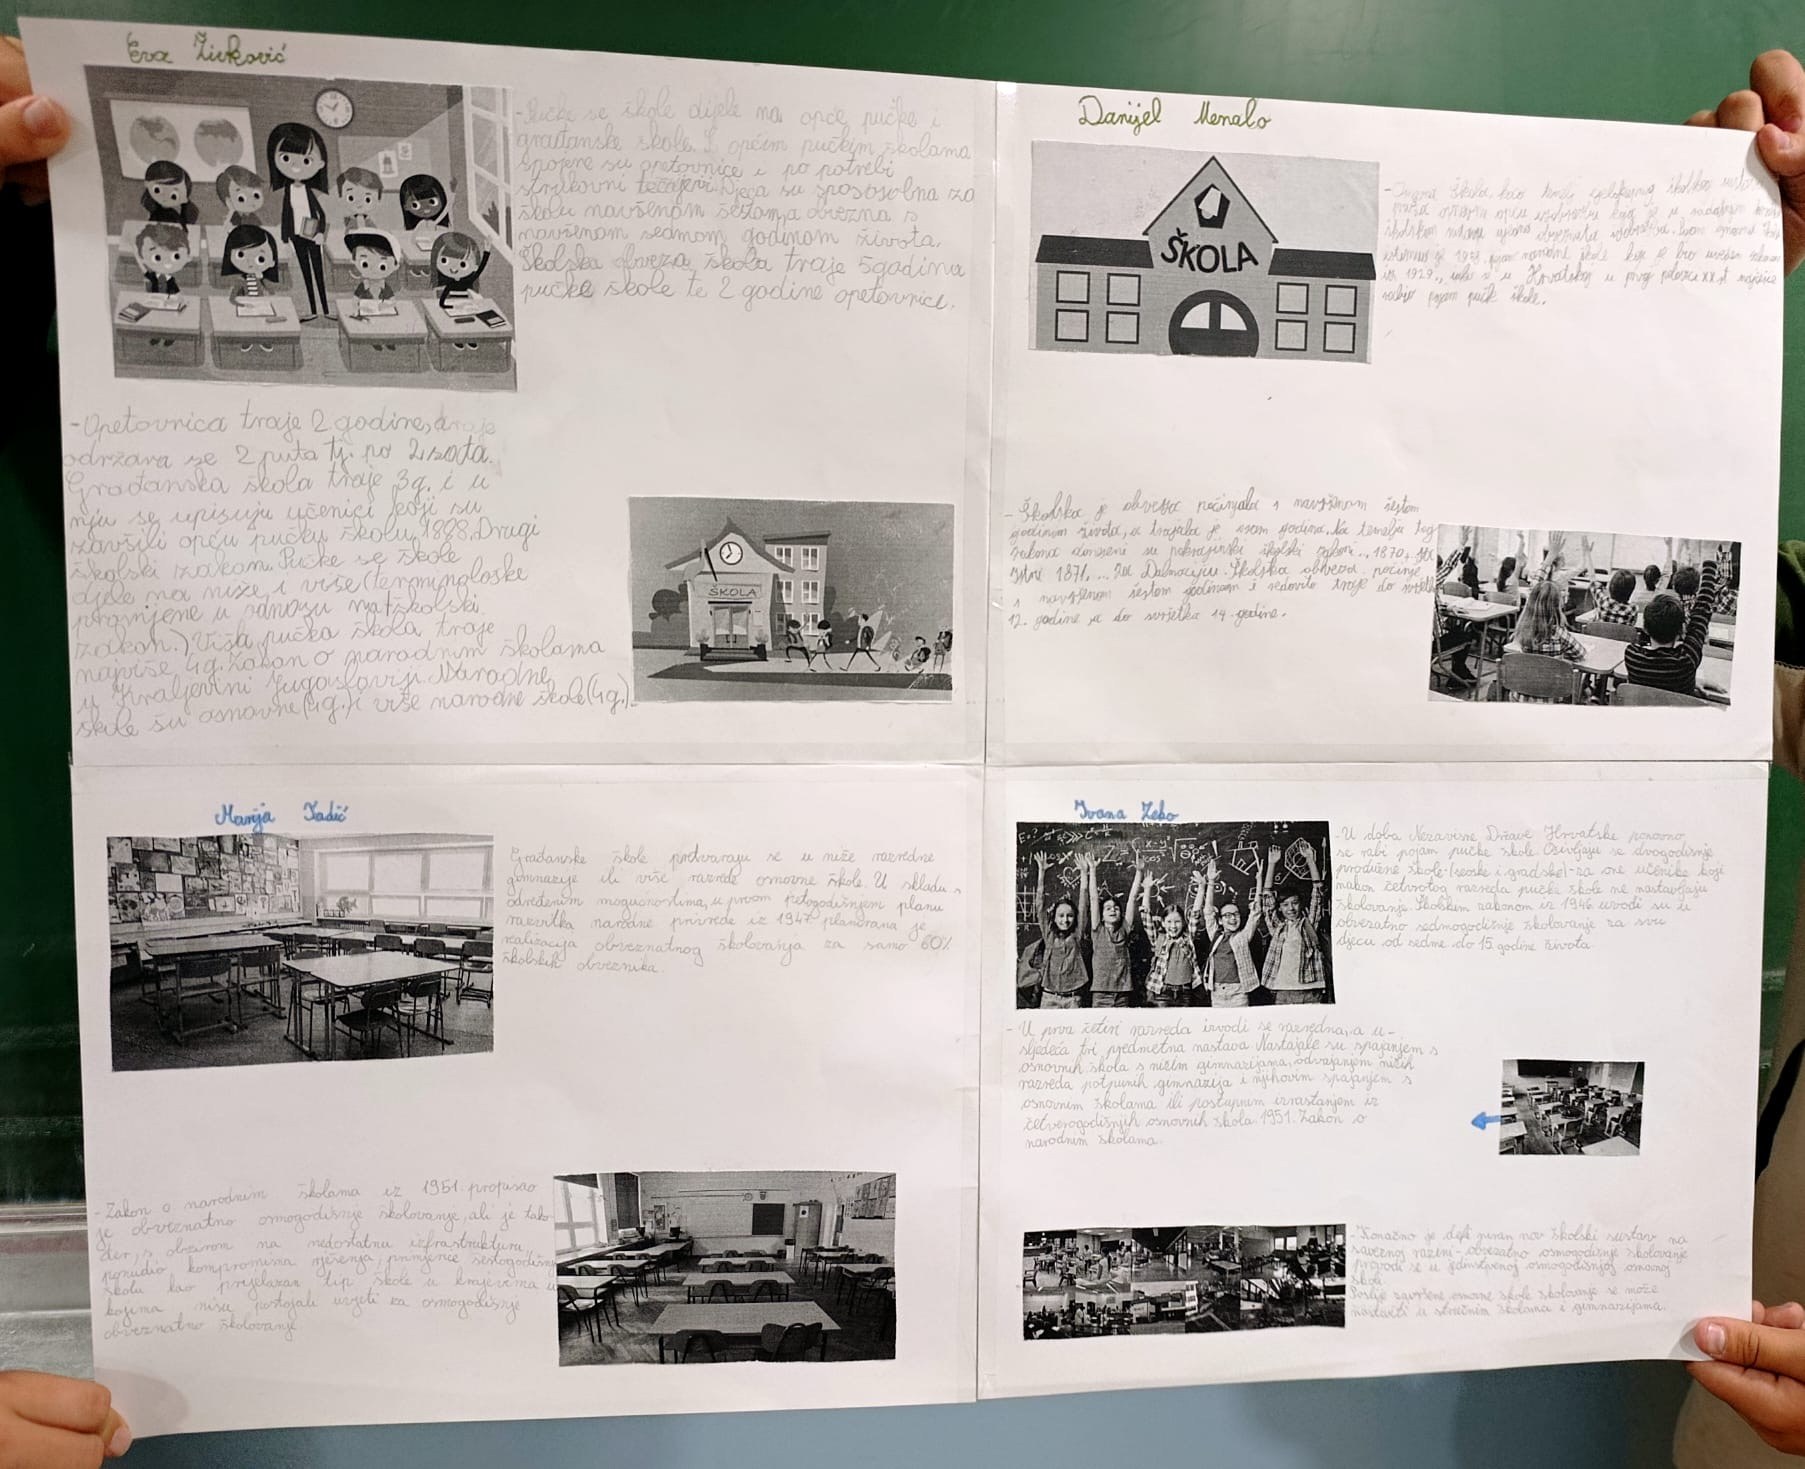 Eva Živković
-Pučke se škole dijele na opće pučke i
građanske škole. S općim pučkim školama
spojene su opetovnice i po potrebi
strukovni tečajevi. Djeca su sposobna za
školu navšenom šestom, a obvezna s
navšenom sedmom godinom života.
Školska obveza škola traje 5 godina
pučke škole te 2 godine opetovnice.
-Opetovnica traje 2 godine, a
održava se 2 puta tj. po 2 sata.
Građanska škola traje 3g. i u
nju se upisuju učenici koji su
završili opću pučku školu. 1888. Drugi
školski zakon. Pučke se škole
djele na niže i više (terminološke
promjene u
zakon.) Viša pučka škola traje
najviše 4g. Zakon o narodnim školama
u Kraljevini Jugoslaviji. Narodne
škole su osnovne (4g.) i više narodne škole (4g.)
ŠKOLA
Danijel Menalo
ŠKOLA
-
pruža osnovnu opću
školskom
1929. pojam narodne škole koji je bio uveden zakonom
iz 1929., iako se u Hrvatskoj u prvoj polovici XX.st. najčešće
rabio pojam pučke škole.
-Školska je obveza počinjala s navršenom šestom
godinom života, a trajala je osam godina. Na temelju tog
zakona doneseni su pokrajinski školski zakoni... 1870. za
Istru 1871. ... za Dalmaciju. Školska obveza počinje
s navršenom šestom godinom i redovito traje do svršetka
12. godine a do svršetka 14. godine.
Marija Tadić
Građanske škole pretvaraju se u niže razredne
gimnazije ili više razrede osnovne škole. U skladu s
određenim mogućnostima, u prvom petogodišnjem planu
razvitka narodne privrede iz 1947. planirana je
realizacija obveznatnog školovanja za samo 60%
školskih obveznika.
-Zakon o narodnim školama iz 1951. propisao
je obveznatno osmogodišnje školovanje, ali je tako
đer, s obzirom na nedostatnu infrastrukturu,
ponudio kompromisna rješenja, primjerice šestogodišnju
školu kao prijelazan tip škole u krajevima u
kojima nisu postojali uvjeti za osmogodišnje
obveznatno školovanje.
Ivana Zebo
-U doba Nezavisne Države Hrvatske ponovno
se rabi pojam pučke škole. Osnivaju se dvogodišnje
produžne škole-(seoske i gradske)-za one učenike koji
nakon četvrtog razreda pučke škole ne nastavljaju
školovanje. Školskim zakonom iz 1946. uvodi se u
obvezatno sedmogodišnje školovanje za svu
djecu od sedme do 15. godine života.
-U prva četiri razreda izvodi se razredna, a u-
sljedeća tri predmetna nastava. Nastajale su spajanjem s
osnovnih škola s nižim gimnazijama, odvajanjem nižih
razreda potpunih gimnazija i njihovim spajanjem s
osnovnim školama ili postupnim izrastanjem iz
četverogodišnjih osnovnih škola. 1951. Zakon o
narodnim školama.
-Konačno je definiran nov školski sustav na
saveznoj razini-obvezatno osmogodišnje školovanje
provodi se u jedinstvenoj osmogodišnjoj osnovnoj
školi.
Poslije završene osnovne škole školovanje se može
nastaviti u stručnim školama i gimnazijama.